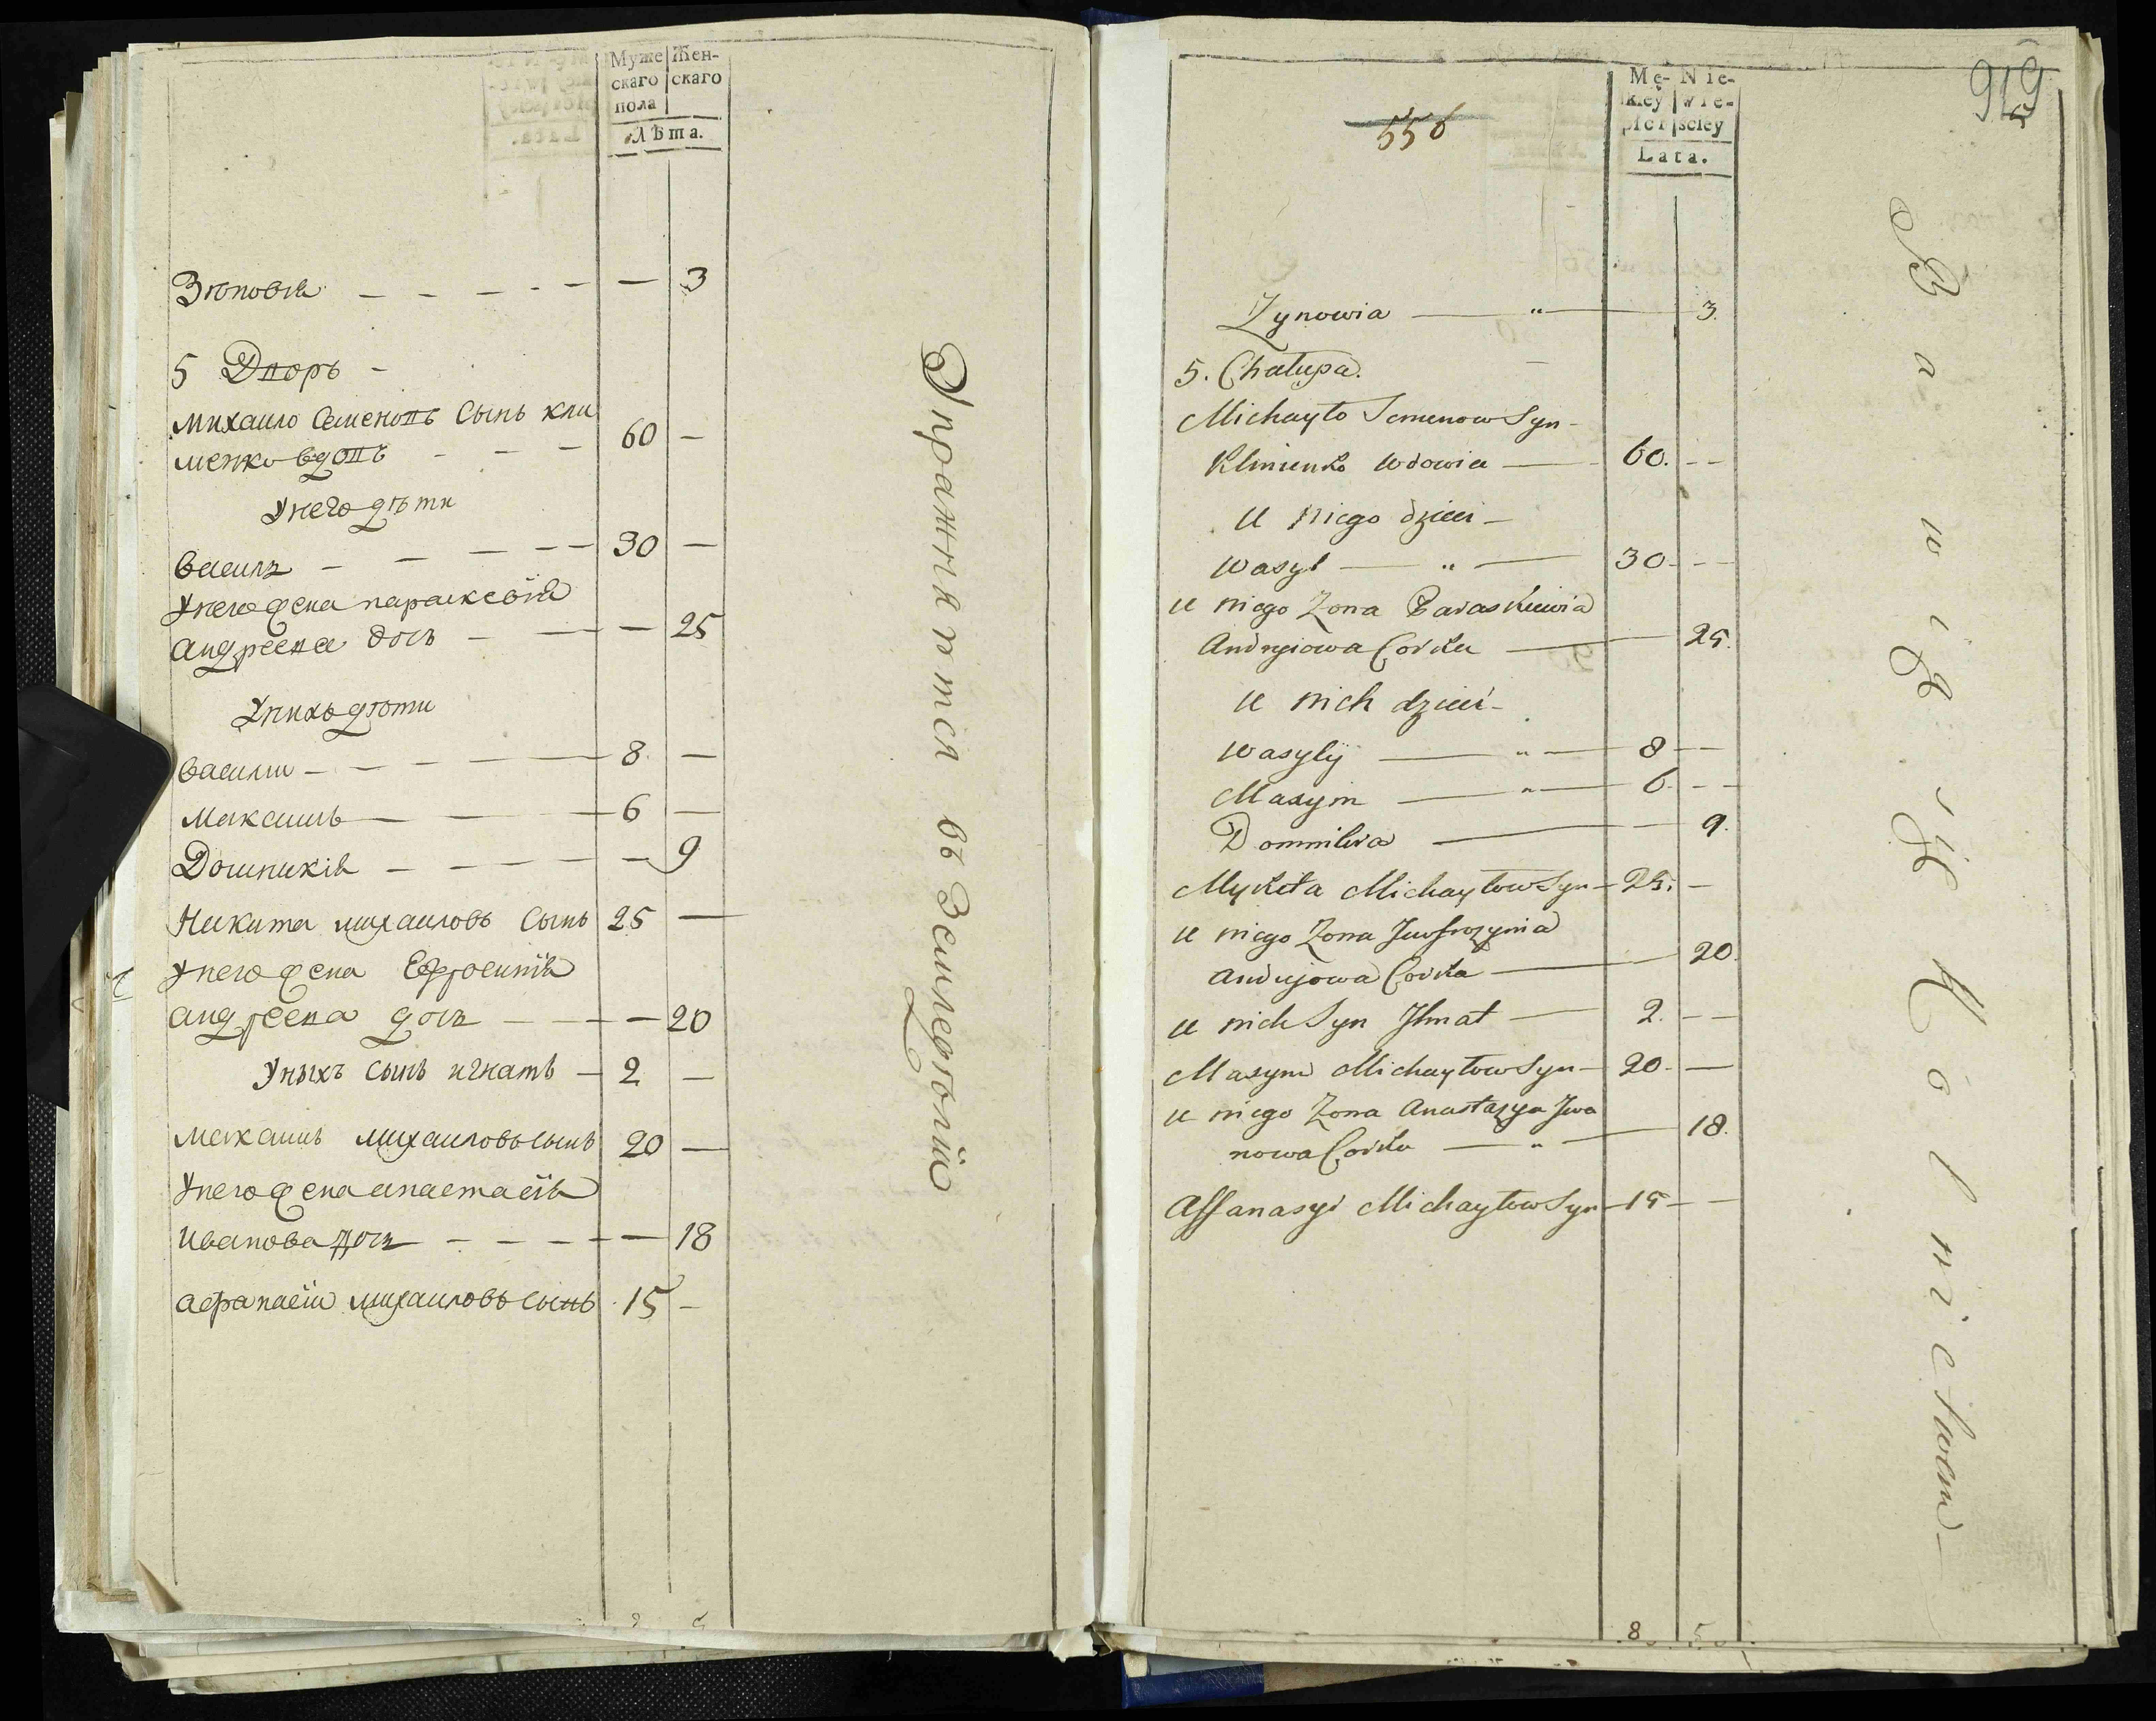 Муже Жен-
скаго скаго
пола
Лѣта.
Зѣновія — 3
5 Дворъ -
Михаило Семеновъ Сынъ Кли
менко вдовъ 60 —
Унего дѣти
Василь 30 —
Унего жена параскевія
андреева дочь — 25
Унихъ дѣти
Василии 8 —
Максимъ 6 —
Домникія — 9
Никита михаиловъ Сынъ 25 —
Унего жена Ефросинія
андреева дочь — 20
Уныхъ сынъ игнатъ 2 —
Максимъ михаиловъ сынъ 20 —
Унего жена анастасія
Иванова дочь — 18
афанасіи михаиловъ сынъ 15 —
Упражняются въ Земледѣліи
Mę- Nie-
kiey wie-
scley
Lata.
556
Zynowia — " — 3.
5. Chałupa.
Michayło Semenow Syn -
Klimenko wdowia — 60. —
u niego dzieci —
Wasyl — " — 30 —
u niego Zona Paraskiewia
Andrejowa Corka — 25.
u nich dzieci -
Wasylÿ — " — 8 —
Maxym — " — 6. —
Domnikia — 9.
Mykita Michayłow Syn — 25. —
u niego Zona Jewfrozynia
Andrejowa Corka — 20.
u nich Syn Ihnat — 2. —
Maxym Michayłow Syn — 20 —
u niego Zona Anastazya Jwa
nowa Corka — " — 18.
Affanasyi Michayłow Syn — 15 —
8 5
Bawią się Rolnictwem